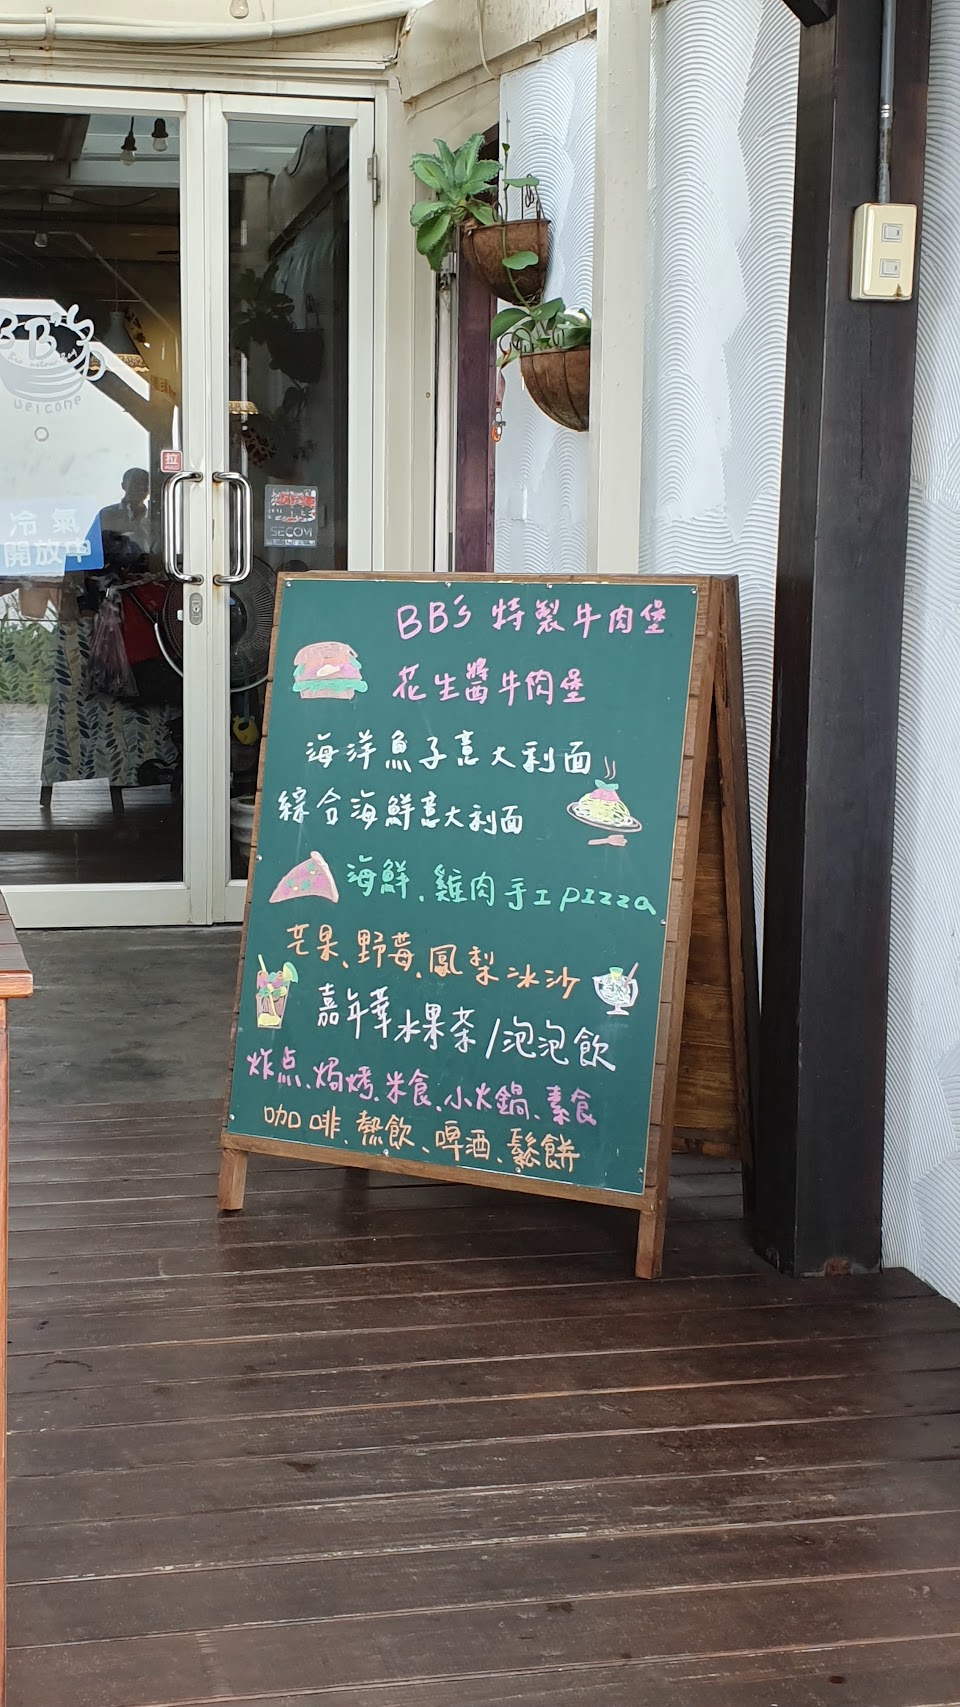 BB's
welcome
拉
冷氣
開放中
SECOM
BB's 特製牛肉堡
花生醬牛肉堡
海洋魚子意大利面
綜合海鮮意大利面
海鮮、雞肉手工pizza
芒果、野莓、鳳梨冰沙
嘉年華水果茶/泡泡飲
炸点、焗烤、米食、小火鍋、素食
咖啡、熱飲、啤酒、鬆餅